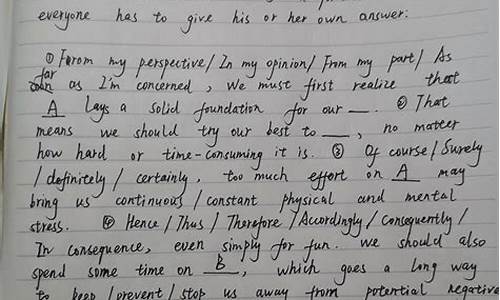 everyone has to give his or her own answer:
① Forom my perspective / In my opinion / From my part / As
far as I'm concerned, We must first realize that
A lays a solid foundation for our __. ② That
means we should try our best to __, no matter
how hard or time-consuming it is. ③ Of course / Surely
/ definitely / certainly, too much effort on A may
bring us continuous / constant physical and mental
stress. ④ Hence / Thus / Therefore / Accordingly / Consequently /
In consequence, even simply for fun. we should also
spend some time on B, which goes a long way
to keep / prevent / stop us away from potential negative